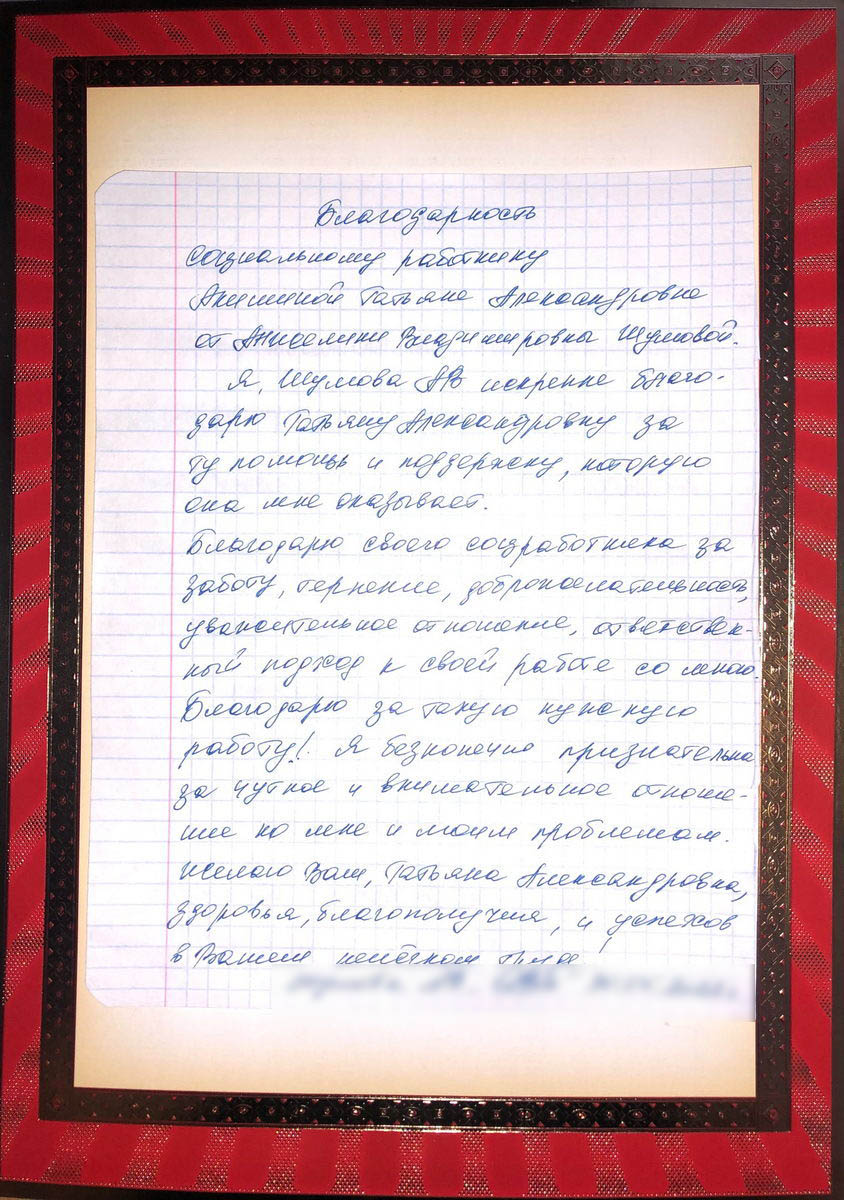 Благодарность
социальному работнику
Акишиной Татьяне Александровне
от Анжелики Владимировны Шумовой.
Я, Шумова АВ искренне благо-
дарю Татьяну Александровну за
ту помощь и поддержку, которую
она мне оказывает.
Благодарю своего соцработника за
заботу, терпение, доброжелательность,
уважительное отношение, ответствен-
ный подход к своей работе со мною.
Благодарю за такую нужную
работу! Я бесконечно признательна
за чуткое и внимательное отноше-
ние ко мне и моим проблемам.
Желаю Вам, Татьяна Александровна,
здоровья, благополучия, и успехов
в Вашем нелёгком труде!